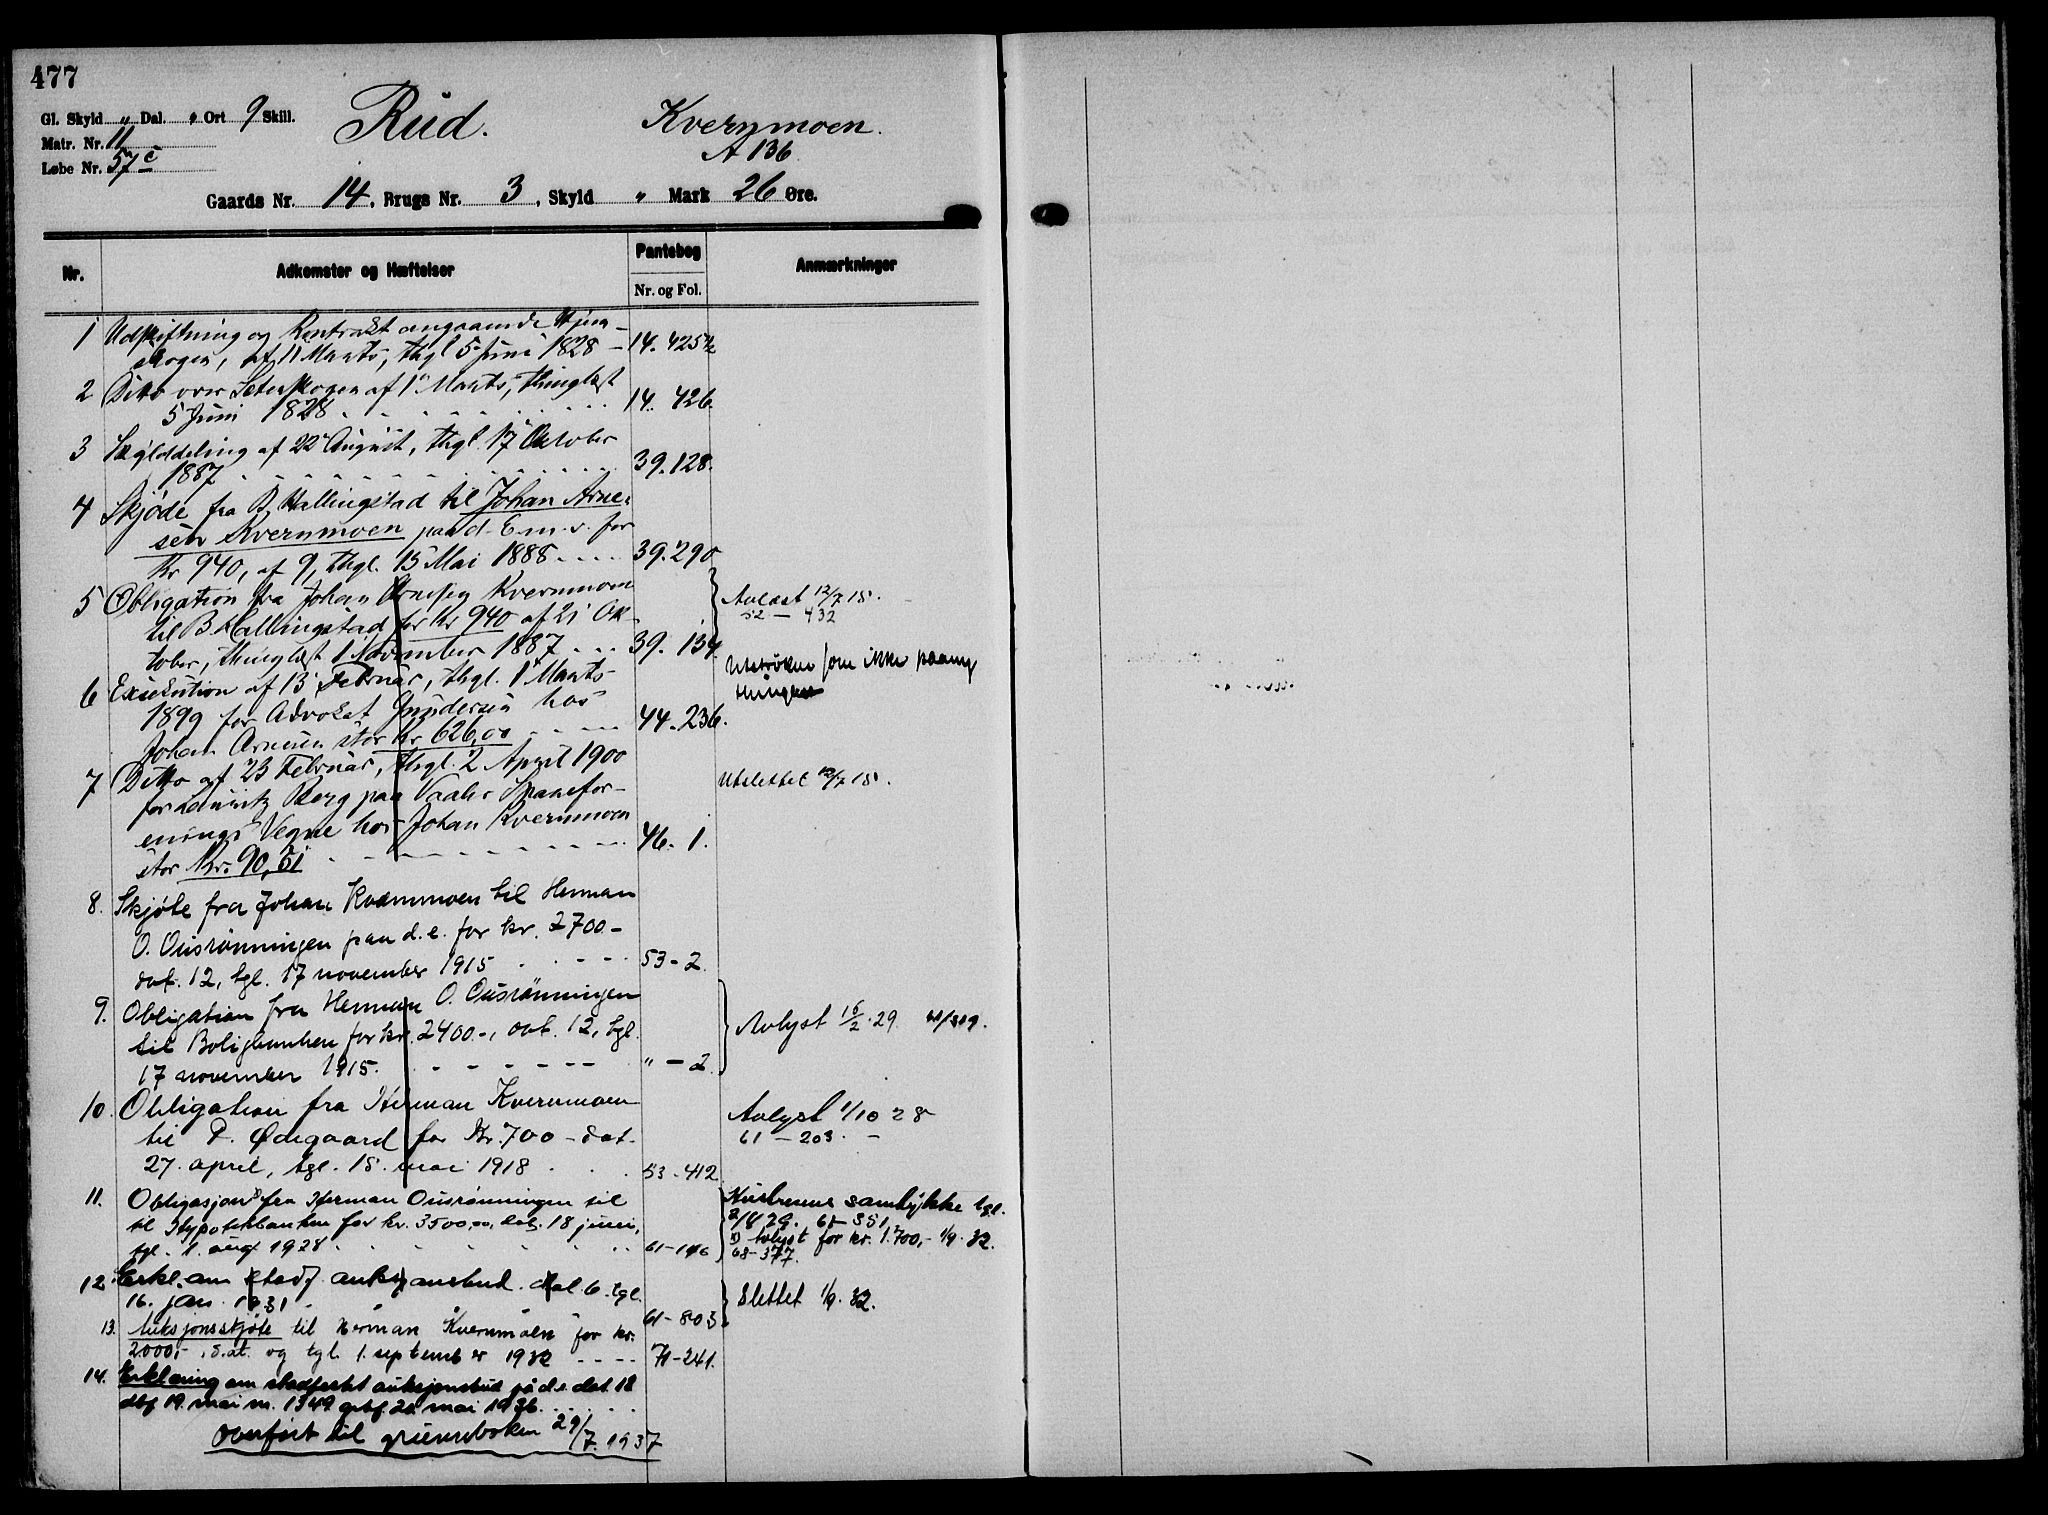 477
Gl. Skyld „ Dal. „ Ort 9 Skill.
Matr. Nr. 11
Løbe Nr. 57 c
Rud.
Kvernmoen.
A 136
Gaards Nr. 14, Brugs Nr. 3, Skyld „ Mark 26 Øre.
Nr.
Adkomster og Hæftelser
Pantebog
Nr. og Fol.
Anmærkninger
1 Udskiftning og Kontrakt angaaende Hjem-
skogen, af 11 Marts, thgl 5 Juni 1828 - 14. 425½
2 Ditto over Seterskogen af 1 Marts, thinglæst
5 Juni 1828 14. 426.
3 Skylddeling af 22 August, thgl. 17 Oktober
1887 39. 128.
4 Skjøde fra B. Hallingstad til Johan Arne-
sen Kvernmoen paa d. E. m. v. for
Kr 940, af 9, thgl. 15 Mai 1888 39. 290
5 Obligation fra Johan Arnesen Kvernmoen
til B. Hallingstad for Kr 940 af 21 Ok-
tober, thinglæst 1 November 1887 39. 134
Avlæst 12/7 15.
52 - 432
6 Exsekution af 13 Februar, thgl. 1 Marts
1899 for Advokat Gundersen hos
Johan Arnesen stor Kr 626,00 44. 236.
Utstrøken som ikke paany
thinglæst
7 Ditto af 23 Februar, thgl. 2 April 1900
for Lauritz Berg paa Vaaler Sparefor-
enings Vegne hos Johan Kvernmoen
stor Kr. 90,51 46. 1.
Utslettet 12/7 15.
8. Skjøte fra Johan Kvernmoen til Herman
O. Ousrønningen paa d. e. for kr. 2700.-
dat. 12, tgl. 17 november 1915 53 - 2.
9. Obligation fra Herman O. Ousrønningen
til Boligbanken for kr. 2400.-, dat. 12, tgl.
17 november 1915. " - 2.
Avlyst 16/2. 29.
10. Obligation fra Herman Kvernmoen
til P. Ødegaard for Kr. 700 - dat.
27. april, tgl. 15. mai 1918 53 - 412
Avlyst 1/10 28
61 - 203.
11. Obligasjon fra Herman Ousrønningen til
til Hypotekbanken for kr. 3500,00, dat. 18 juni,
tgl. 1. aug 1928 61 - 146
Hustruens samtykke tgl.
2/8 29. 61 - 351
x) Avlyst for kr. 1.700,- 1/9. 32.
68 - 377.
12. Erkl. om stadf. auksjonsbud. dat 6. tgl.
16. jan. 1931 61 - 803
Slettet 1/9. 32.
13. Auksjonsskjøte til Herman Kvernmoen for kr.
2000,-, dat. og tgl. 1. september 1932 71 - 241.
14. Erklæring om stadfestet auksjonsbud på d.e. dat. 18
dbf 19. mai nr. 1349 grbf. 20 mai 1936
Overført til grunnboken 29/7. 1937